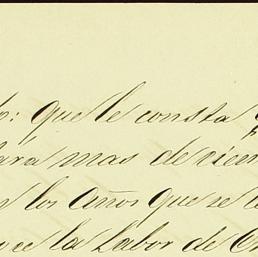 que le consta
mas de cien
los años que se
la Labor de